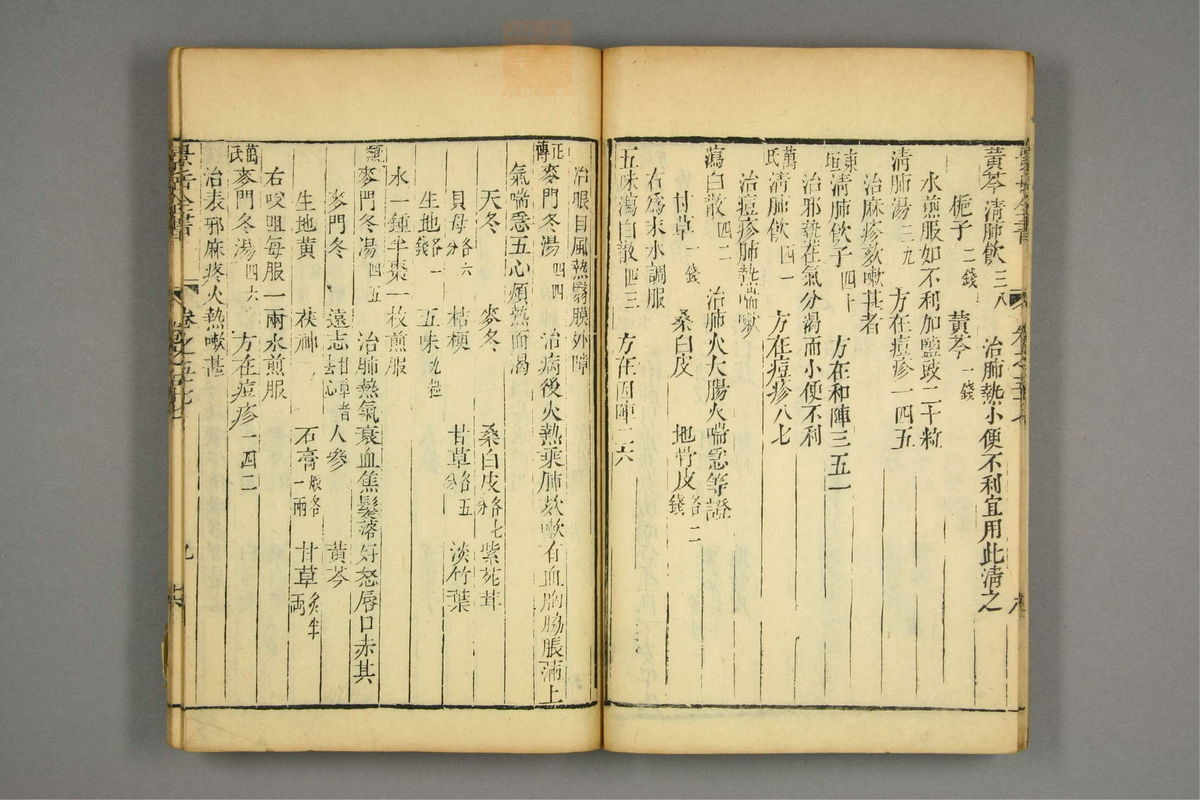 黃芩清肺飲三八　治肺熱小便不利宜用此清之
梔子二錢　黃芩一錢
水煎服如不利加鹽豉二十粒
清肺湯三九　方在痘疹一四五
治麻疹欬嗽甚者
東垣清肺飲子四十　方在和陣三五一
治邪熱在氣分渴而小便不利
萬氏清肺飲四一　方在痘疹八七
治痘疹肺熱喘嗽
瀉白散四二　治肺火大腸火喘急等證
甘草一錢　桑白皮　地骨皮各二錢
右為末水調服
五味瀉白散四三　方在因陣二六
治眼目風熱翳膜外障
正傳麥門冬湯四四　治病後火熱乘肺欬嗽有血胸脇脹滿上
氣喘急五心煩熱而渴
天冬　麥冬　桑白皮各七分　紫菀茸
貝母各六分　桔梗　甘草各五分　淡竹葉
生地各一錢　五味九粒
水一鍾半棗一枚煎服
麥門冬湯四五　治肺熱氣衰血焦髮落好怒唇口赤甚
麥門冬　遠志甘草煮去心　人參　黃芩
生地黃　茯神　石膏煅各一兩　甘草炙半兩
右㕮咀每服一兩水煎服
萬氏麥門冬湯四六　方在痘疹一四二
治表邪麻疹火熱嗽甚
景岳全書　卷之五十七　九